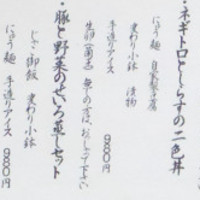 ・ネギトロとしらすの二色丼
にゅう麺 自家製豆腐
変わり小鉢 漬物
手造りアイス
980円
・豚と野菜のせいろ蒸しセット
じゃこ御飯 変わり小鉢
にゅう麺
手造りアイス
980円